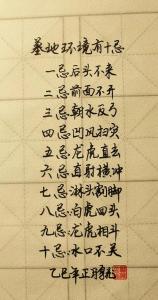 墓地环境有十忌
一忌后头不来
二忌前面不开
三忌朝水反弓
四忌凹风扫穴
五忌龙虎直去
六忌直射横冲
七忌淋头割脚
八忌白虎回头
九忌龙虎相斗
十忌水口不关
乙巳年正月